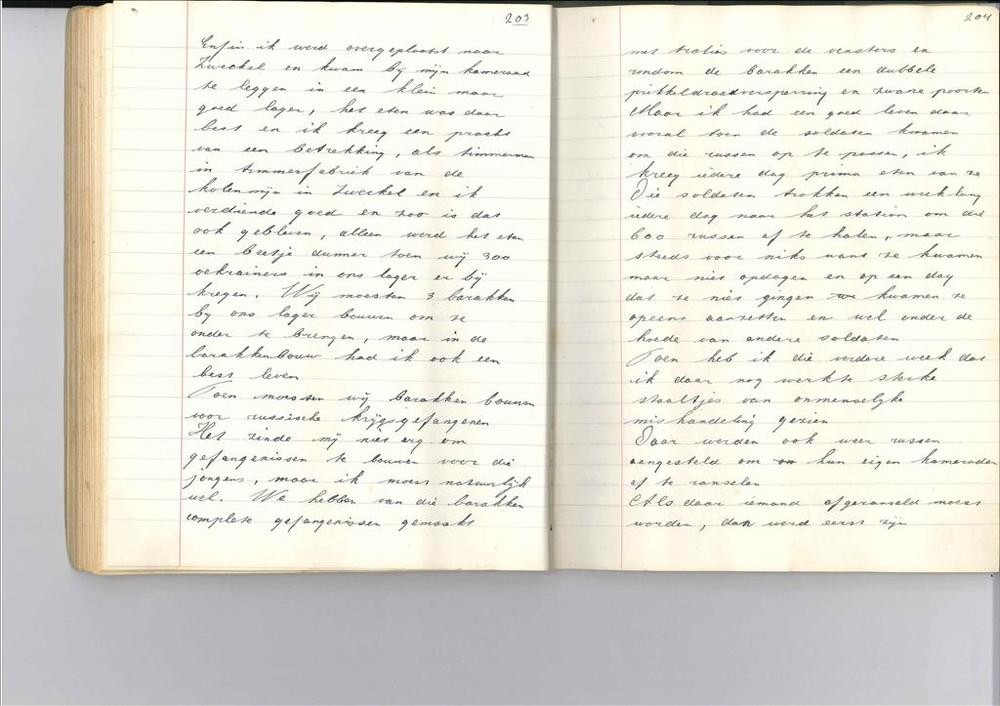 203
Enfin ik werd overgeplaatst naar
Zweckel en kwam bij mijn kameraad
te leggen in een klein maar
goed lager, het eten was daar
best en ik kreeg een pracht
van een betrekking, als timmerman
in timmerfabriek van de
kolenmijn in Zweckel en ik
verdiende goed en zoo is dat
ook gebleven, alleen werd het eten
een beetje dunner toen wij 300
oekrainers in ons lager er bij
kregen. Wij moesten 3 barakken
bij ons lager bouwen om ze
onder te brengen, maar in de
barakkenbouw had ik ook een
best leven
Toen moesten wij barakken bouwen
voor russische krijgsgefangenen
Het zinde mij niet erg om
gefangenissen te bouwen voor die
jongens, maar ik moest natuurlijk
wel. We hebben van die barakken
complete gefangenissen gemaakt
204
met tralies voor de vensters en
rondom de barakken een dubbele
prikkeldraadversperring en zware poorten
Maar ik had een goed leven daar
vooral toen de soldaten kwamen
om die russen op te passen, ik
kreeg iedere dag prima eten van ze
Die soldaten trokken een week lang
iedere dag naar het station om die
600 russen af te halen, maar
steeds voor niks want ze kwamen
maar niet opdagen en op een dag
dat ze niet gingen kwamen ze
opeens aanzetten en wel onder de
hoede van andere soldaten
Toen heb ik die verdere week dat
ik daar nog werkte sterke
staaltjes van onmenselijke
mishandeling gezien
Daar werden ook weer russen
aangesteld om hun eigen kameraden
af te ranselen
Als daar iemand afgeranseld moest
worden, dan werd eerst zijn